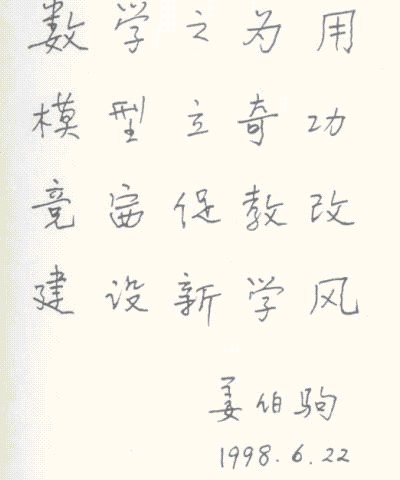 数学之为用
模型立奇功
竞赛促教改
建设新学风
姜伯驹
1998.6.22